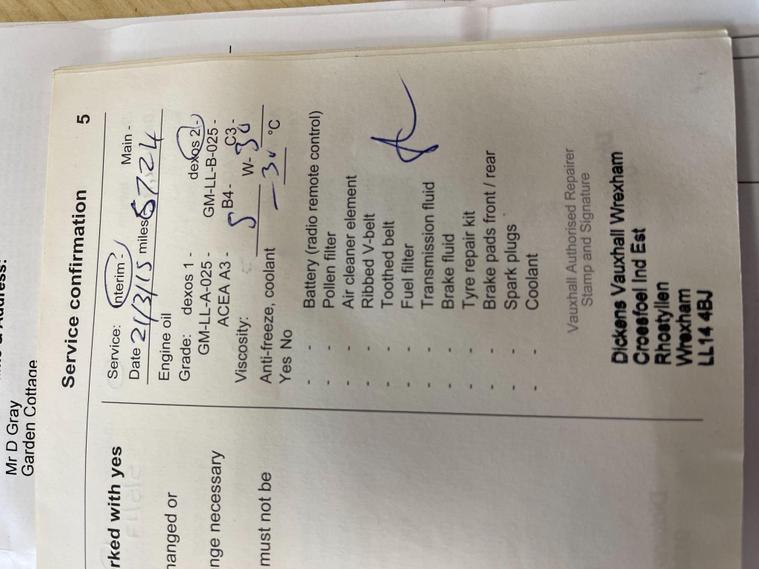 Mr D Gray
Garden Cottage
rked with yes
hanged or
nge necessary
must not be
Service confirmation 5
Service: Interim - Main -
Date 21/3/15 miles 8724
Engine oil
Grade: dexos 1 - dexos 2 -
GM-LL-A-025 - GM-LL-B-025 -
ACEA A3 - B4 - C3 -
Viscosity: 5 W- 30
Anti-freeze, coolant -30 °C
Yes No
- - Battery (radio remote control)
- - Pollen filter
- - Air cleaner element
- - Ribbed V-belt
- - Toothed belt
- - Fuel filter
- - Transmission fluid
- - Brake fluid
- - Tyre repair kit
- - Brake pads front / rear
- - Spark plugs
- - Coolant
Vauxhall Authorised Repairer
Stamp and Signature
Dickens Vauxhall Wrexham
Croesfoel Ind Est
Rhostyllen
Wrexham
LL14 4BJ